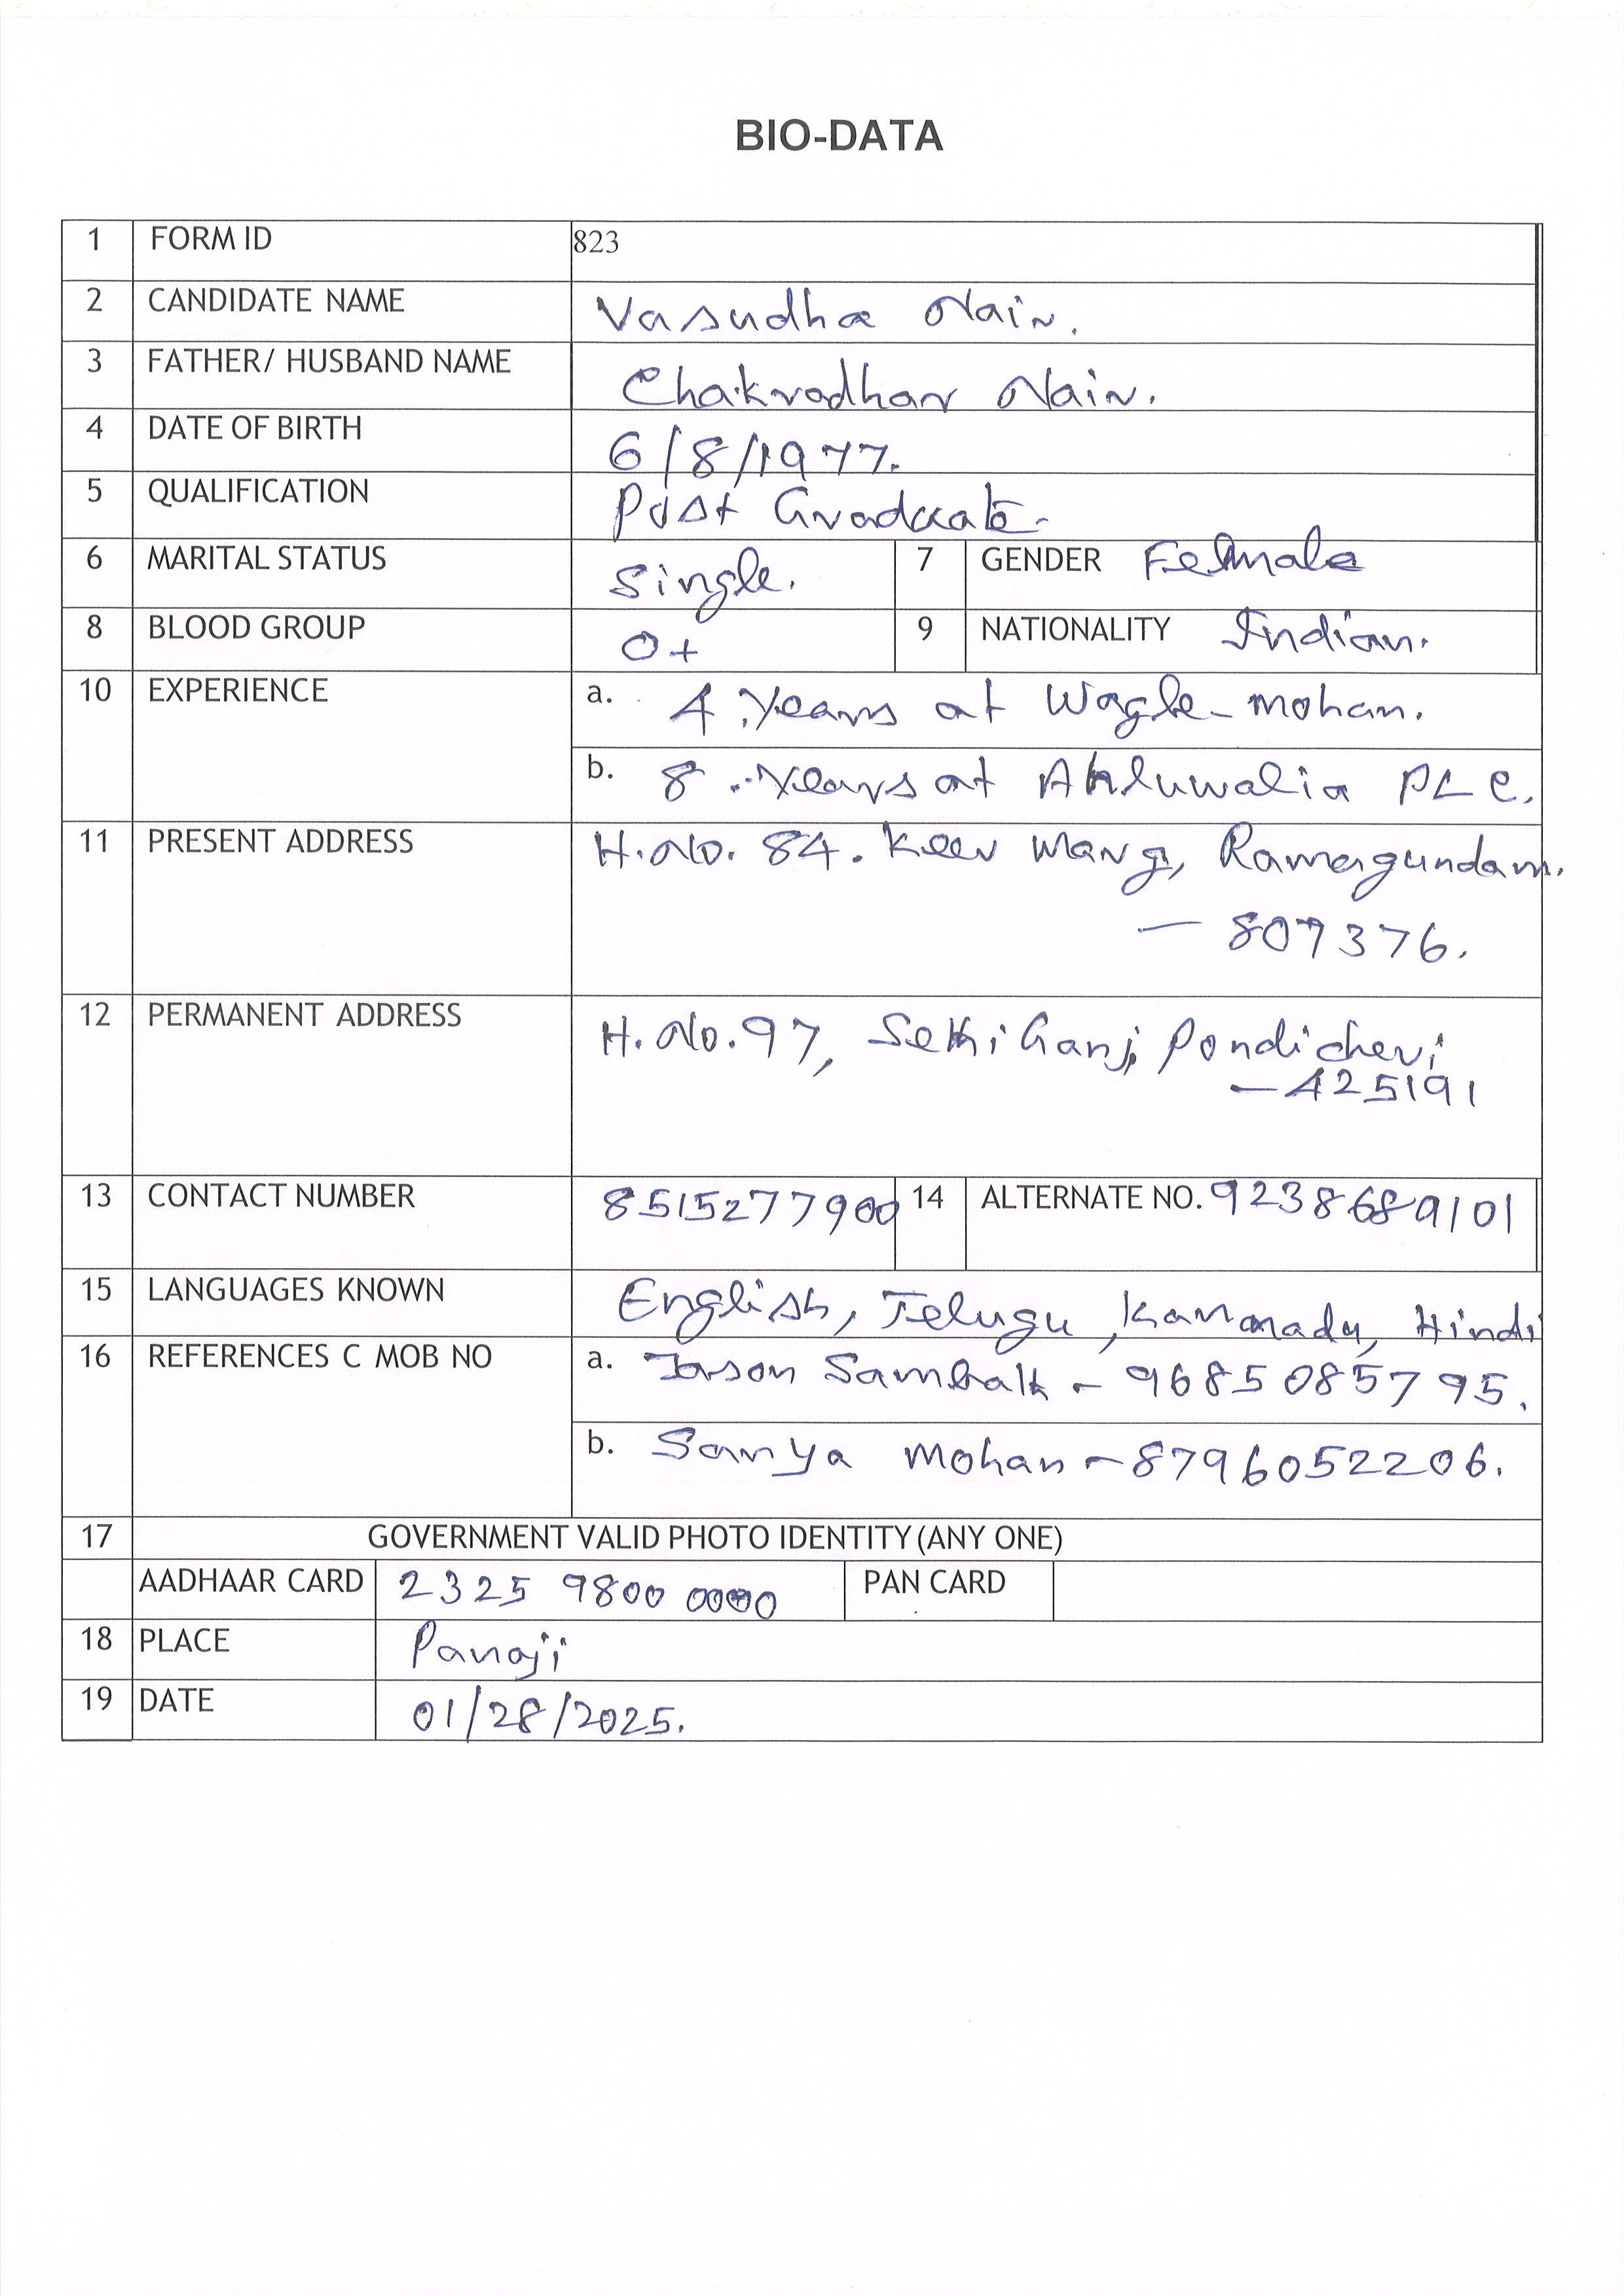 BIO-DATA
1 FORM ID 823
2 CANDIDATE NAME Vasudha Nair.
3 FATHER/ HUSBAND NAME Chakradhar Nair.
4 DATE OF BIRTH 6/8/1977.
5 QUALIFICATION Post Graduate.
6 MARITAL STATUS Single. 7 GENDER Female
8 BLOOD GROUP O+ 9 NATIONALITY Indian.
10 EXPERIENCE a. 4 Years at Wagle-Mohan.
b. 8 Years at Ahluwalia PLC.
11 PRESENT ADDRESS H.No. 84. Keer Marg, Ramagundam.
- 807376.
12 PERMANENT ADDRESS H.No.97, Sethi Ganj, Pondicheri
- 425191
13 CONTACT NUMBER 8515277900 14 ALTERNATE NO. 9238689101
15 LANGUAGES KNOWN English, Telugu, Kannada, Hindi
16 REFERENCES C MOB NO a. Jason - 9685085795.
b. Sanya Mohan - 8796052206.
17 GOVERNMENT VALID PHOTO IDENTITY (ANY ONE)
AADHAAR CARD 2325 9800 0000 PAN CARD
18 PLACE Panaji
19 DATE 01/28/2025.